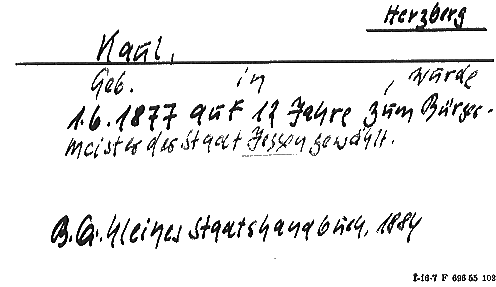 Herzberg
Kaul,
Geb. in , wurde
1.6.1877 auf 12 Jahre zum Bürger-
meister der Stadt Jessen gewählt.
B.G. kleines Staatshandbuch, 1884
I-16-7 F 696 55 102